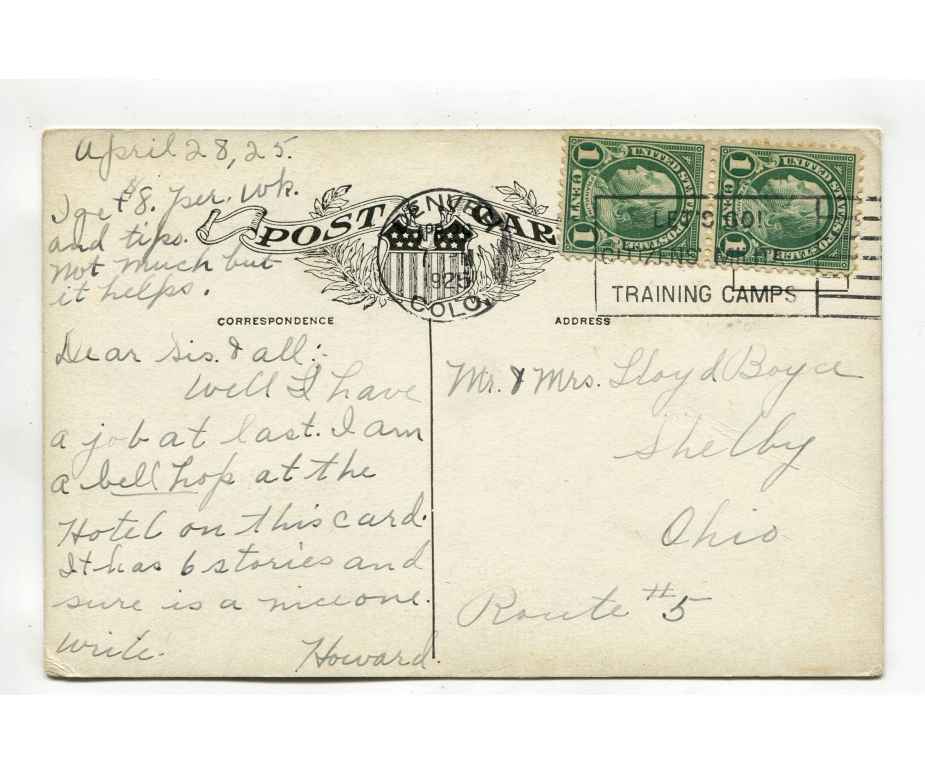 April 28, 25.
I get $8. per. wk.
and tips.
Not much but
it helps.
POST CAR
DENVER
1925
COLO.
1 CENT 1
UNITED STATES POSTAGE
1 CENT 1
UNITED STATES POSTAGE
LET'S GO!
TRAINING CAMPS
CORRESPONDENCE
ADDRESS
Dear Sis. & all:-
Well I have
a job at last. I am
a bell hop at the
Hotel on this card.
It has 6 stories and
sure is a nice one.
write.
Howard.
Mr. & Mrs. Lloyd Boyce
Shelby
Ohio
Route #5